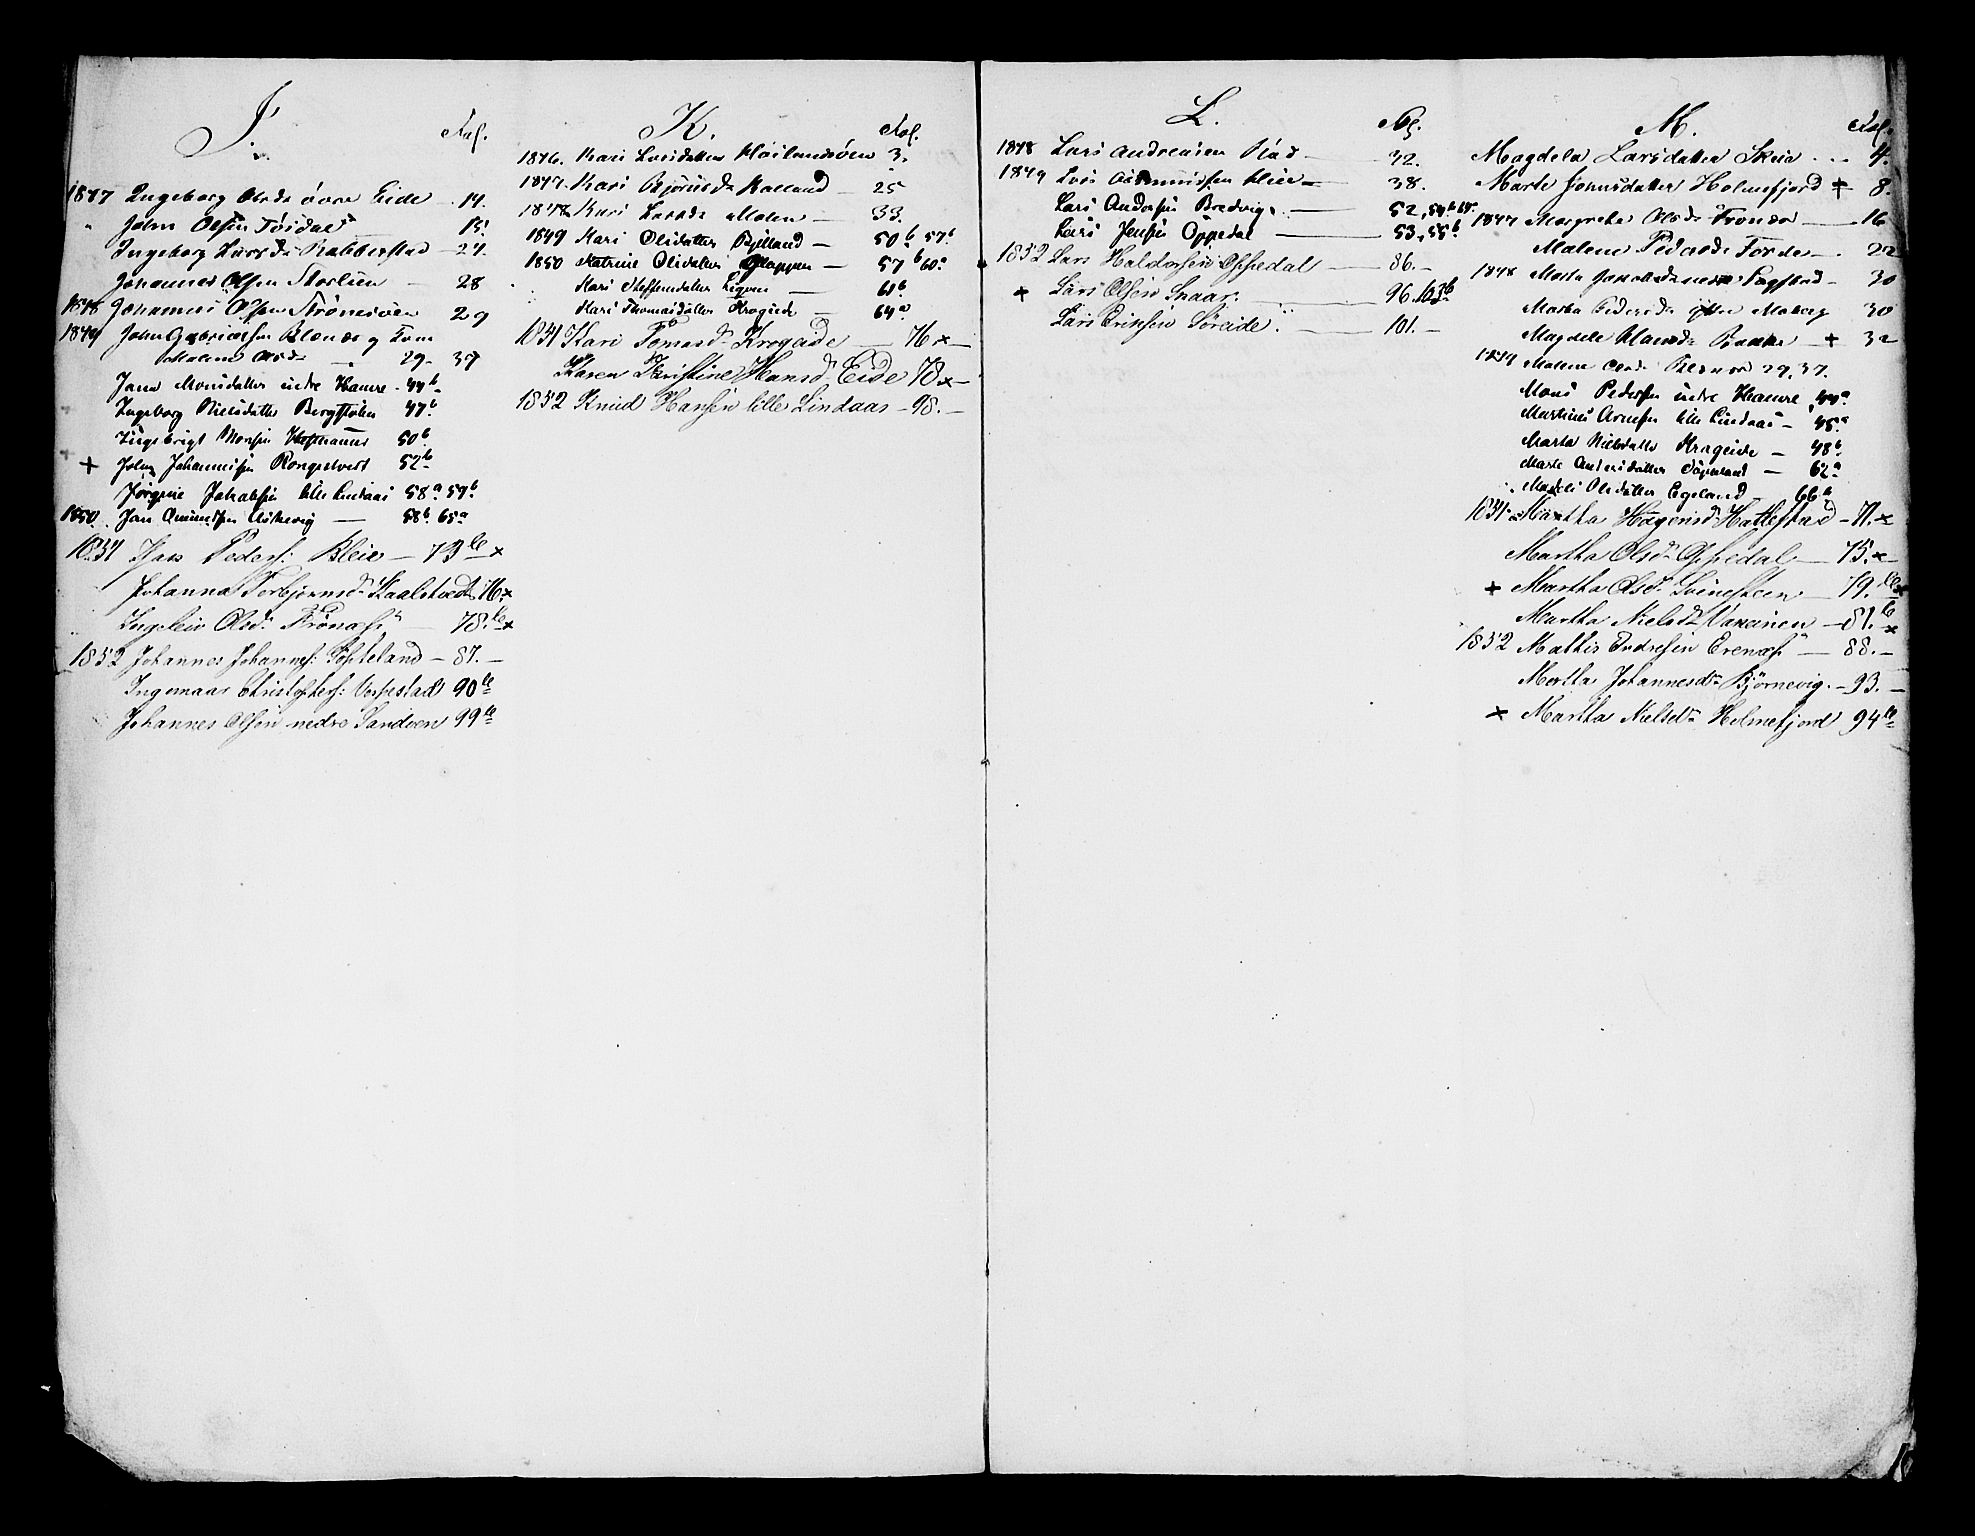 I.
Fol.
1847 Ingeborg Olsda øvre Eide 14.
" John Olsen Torsdal 15
Ingeborg Larsda Rabberstad 27.
Johannes Olsen Storlien 28
1848 Johannes Olsen Strømsøen 29
1849 John Gabrielsen Blenes og Kone
Malene Olsda 29 - 37
Jan Monsdatter indre Hamre - 44b
Ingeborg Nielsdatter Bergstølen 47b
Ingebrigt Monsen 50b
+ John Johannesen Rongestvedt 52b
Jørgine Jakobsen lille Lindaas 58a 59b
1850. Jan 58b. 65a
1851 Jens Peders: Bleie - 73b x
Johanna Torbjørnsd. Skaaltvedt 76. x
Ingeleiv Olsd. 78.b x
1852 Johannes Johannes: Tøsteland - 87. -
Ingemaar Christophers: Vespestad 90b
Johannes Olsen nedre Sandven 99b
K.
Fol.
1846. Kari Larsdatter Høilandsøen 3.
1847. Kari Bjørnsda Kalland - 25
1848 Kari Larsda Molen - 33.
1849 Kari Olsdatter Bjelland - 50b 57b
1850 Katrine Olsdatter Gloppen - 57b 60a
Kari Steffensdatter Eegum - 61b
Kari Thomasdatter Krogeide - 64a
1851 Kari Tomasd. Krogeide - 76 x -
Karen Kristine Hansd. Eide 78 x -
1852 Knud Hansen lille Lindaas - 98. -
L.
Fol.
1848 Lars Andreasen Riad - 32.
1849 Lars Aasmundsen Lien - 38.
Lars Andersen Bredvig. 52, 54b 68.
Lars Jensen Oppedal - 53, 55b
1852 Lars Haldorsen Oppedal - 86. -
+ Lars Olsen Snaar. - 96. 103b
Lars Eriksen Søreide. - 101. -
M.
Fol.
Magdela Larsdatter Skeie . . . 4.
Marte Johnsdatter Holmefjord + 8.
1847 Margrete Olsda Frønes - 16
Malene Pedersda Førde - 22
1848 Marta 30
Marta Pedersda ytre Moberg 30
Magdele Hansda Bakke - + 32
1849 Malene Olsda Blenes 29, 37.
Mons Pedersen indre Hamre, 44a
Martines Arnesen lille Lindaas - 45a
Marta Nielsdatter Krogeide - 48b
Marte Andersdatter - 62a
Madeli Olsdatter Egeland - 66b
1851 - Martha Haagensd. Hatlestad - 71. x
Martha Olsd. Oppedal - 75. x
+ Martha Olsd. Svensteen - 79. b x
Martha Nielsd. - 81. b x
1852 Mathis Endresen - 88. -
Martha Johannesd. Bjørnevig. - 93. -
x Martha Nielsd. Holmefjord 94b